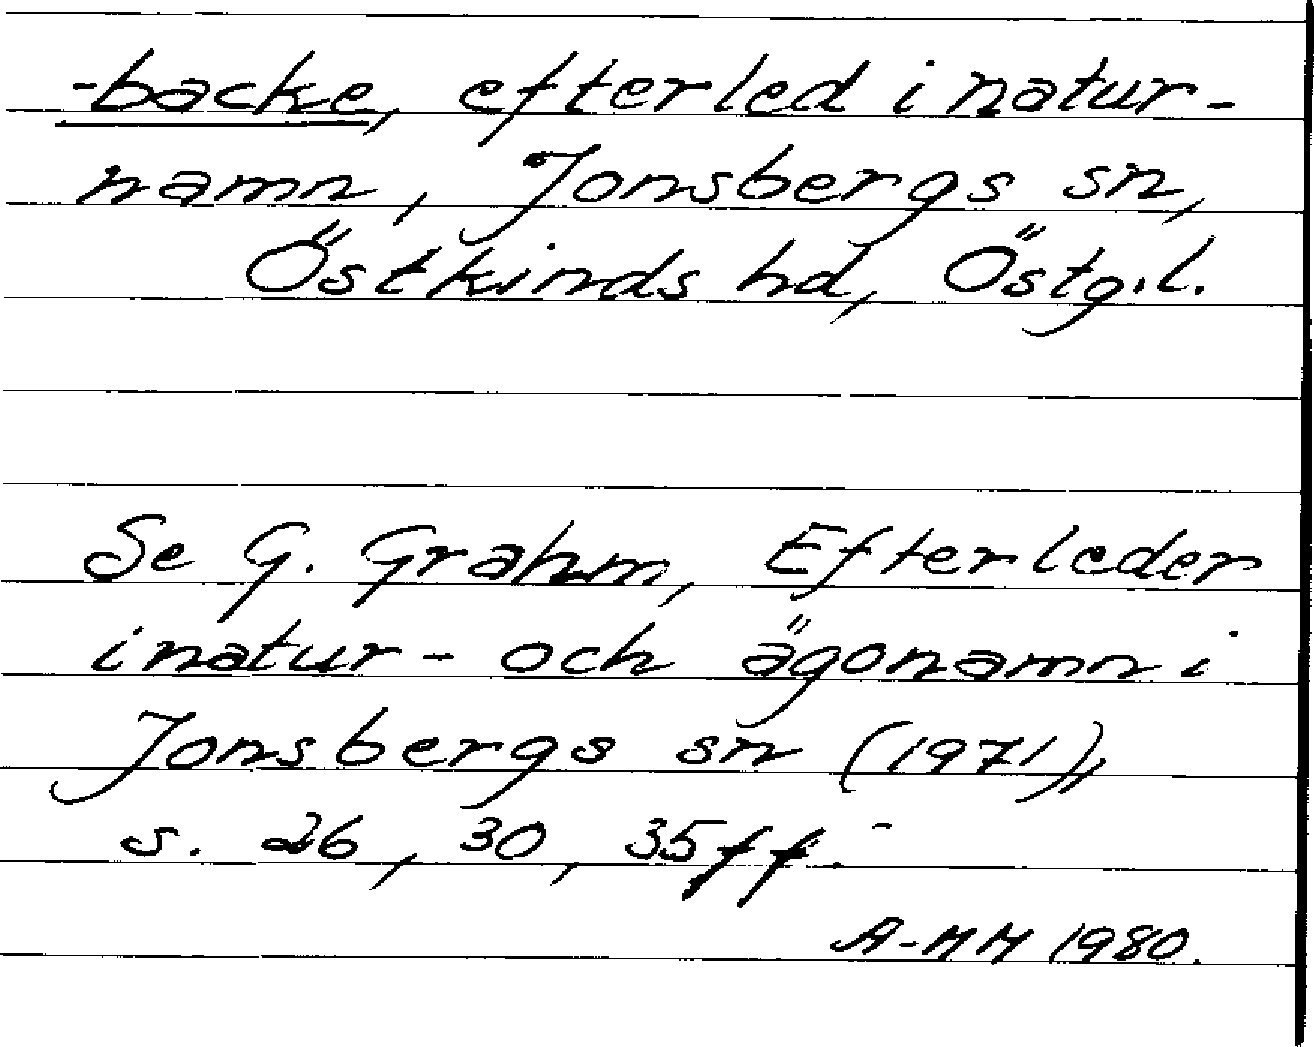 -backe, efterled i natur-
namn, Jonsbergs sn,
Östkinds hd, Östg.l.
Se G. Grahm, Efterleder
i natur- och ägonamn i
Jonsbergs sn (1971),
s. 26, 30, 35ff.
A-MH 1980.